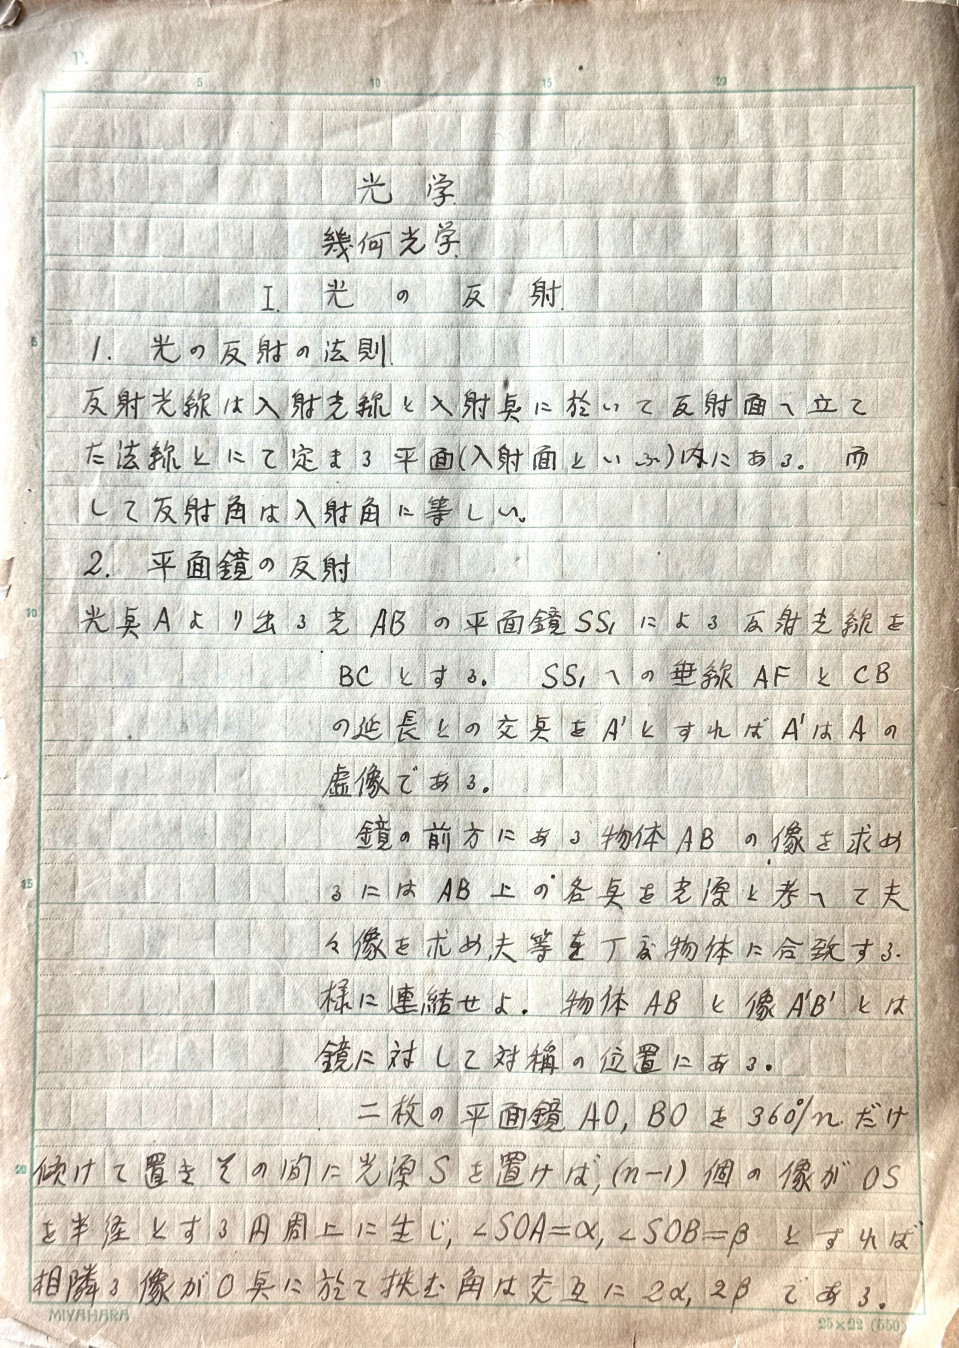 P.
5 10 15 20
光 学
幾何光学
I. 光 の 反 射
5
1. 光の反射の法則
反射光線は入射光線と入射点に於いて反射面へ立て
た法線とにて定まる平面(入射面といふ)内にある。而
して反射角は入射角に等しい。
2. 平面鏡の反射
10
光点Aより出る光ABの平面鏡SS₁による反射光線を
BCとする。 SS₁への垂線AFとCB
の延長との交点をA'とすればA'はAの
虚像である。
鏡の前方にある物体ABの像を求め
15
るにはAB上の各点を光源と考へて夫
々像を求め,夫等を丁度物体に合致する
様に連結せよ. 物体ABと像A'B'とは
鏡に対して対稱の位置にある。
二枚の平面鏡AO, BOを360°/nだけ
20
傾けて置きその間に光源Sを置けば,(n-1)個の像がOS
を半径とする円周上に生じ, ∠SOA=α, ∠SOB=βとすれば
相隣る像がO点に於て挟む角は交互に2α, 2βである.
MIYAHARA
25×22 (550)